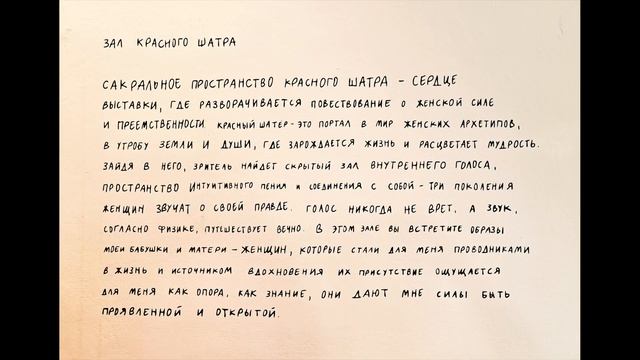 ЗАЛ КРАСНОГО ШАТРА
САКРАЛЬНОЕ ПРОСТРАНСТВО КРАСНОГО ШАТРА – СЕРДЦЕ
ВЫСТАВКИ, ГДЕ РАЗВОРАЧИВАЕТСЯ ПОВЕСТВОВАНИЕ О ЖЕНСКОЙ СИЛЕ
И ПРЕЕМСТВЕННОСТИ. КРАСНЫЙ ШАТЕР – ЭТО ПОРТАЛ В МИР ЖЕНСКИХ АРХЕТИПОВ,
В УТРОБУ ЗЕМЛИ И ДУШИ, ГДЕ ЗАРОЖДАЕТСЯ ЖИЗНЬ И РАСЦВЕТАЕТ МУДРОСТЬ.
ЗАЙДЯ В НЕГО, ЗРИТЕЛЬ НАЙДЕТ СКРЫТЫЙ ЗАЛ ВНУТРЕННЕГО ГОЛОСА,
ПРОСТРАНСТВО ИНТУИТИВНОГО ПЕНИЯ И СОЕДИНЕНИЯ С СОБОЙ – ТРИ ПОКОЛЕНИЯ
ЖЕНЩИН ЗВУЧАТ О СВОЕЙ ПРАВДЕ. ГОЛОС НИКОГДА НЕ ВРЕТ, А ЗВУК,
СОГЛАСНО ФИЗИКЕ, ПУТЕШЕСТВУЕТ ВЕЧНО. В ЭТОМ ЗАЛЕ ВЫ ВСТРЕТИТЕ ОБРАЗЫ
МОЕЙ БАБУШКИ И МАТЕРИ – ЖЕНЩИН, КОТОРЫЕ СТАЛИ ДЛЯ МЕНЯ ПРОВОДНИКАМИ
В ЖИЗНЬ И ИСТОЧНИКОМ ВДОХНОВЕНИЯ ИХ ПРИСУТСТВИЕ ОЩУЩАЕТСЯ
ДЛЯ МЕНЯ КАК ОПОРА, КАК ЗНАНИЕ, ОНИ ДАЮТ МНЕ СИЛЫ БЫТЬ
ПРОЯВЛЕННОЙ И ОТКРЫТОЙ.